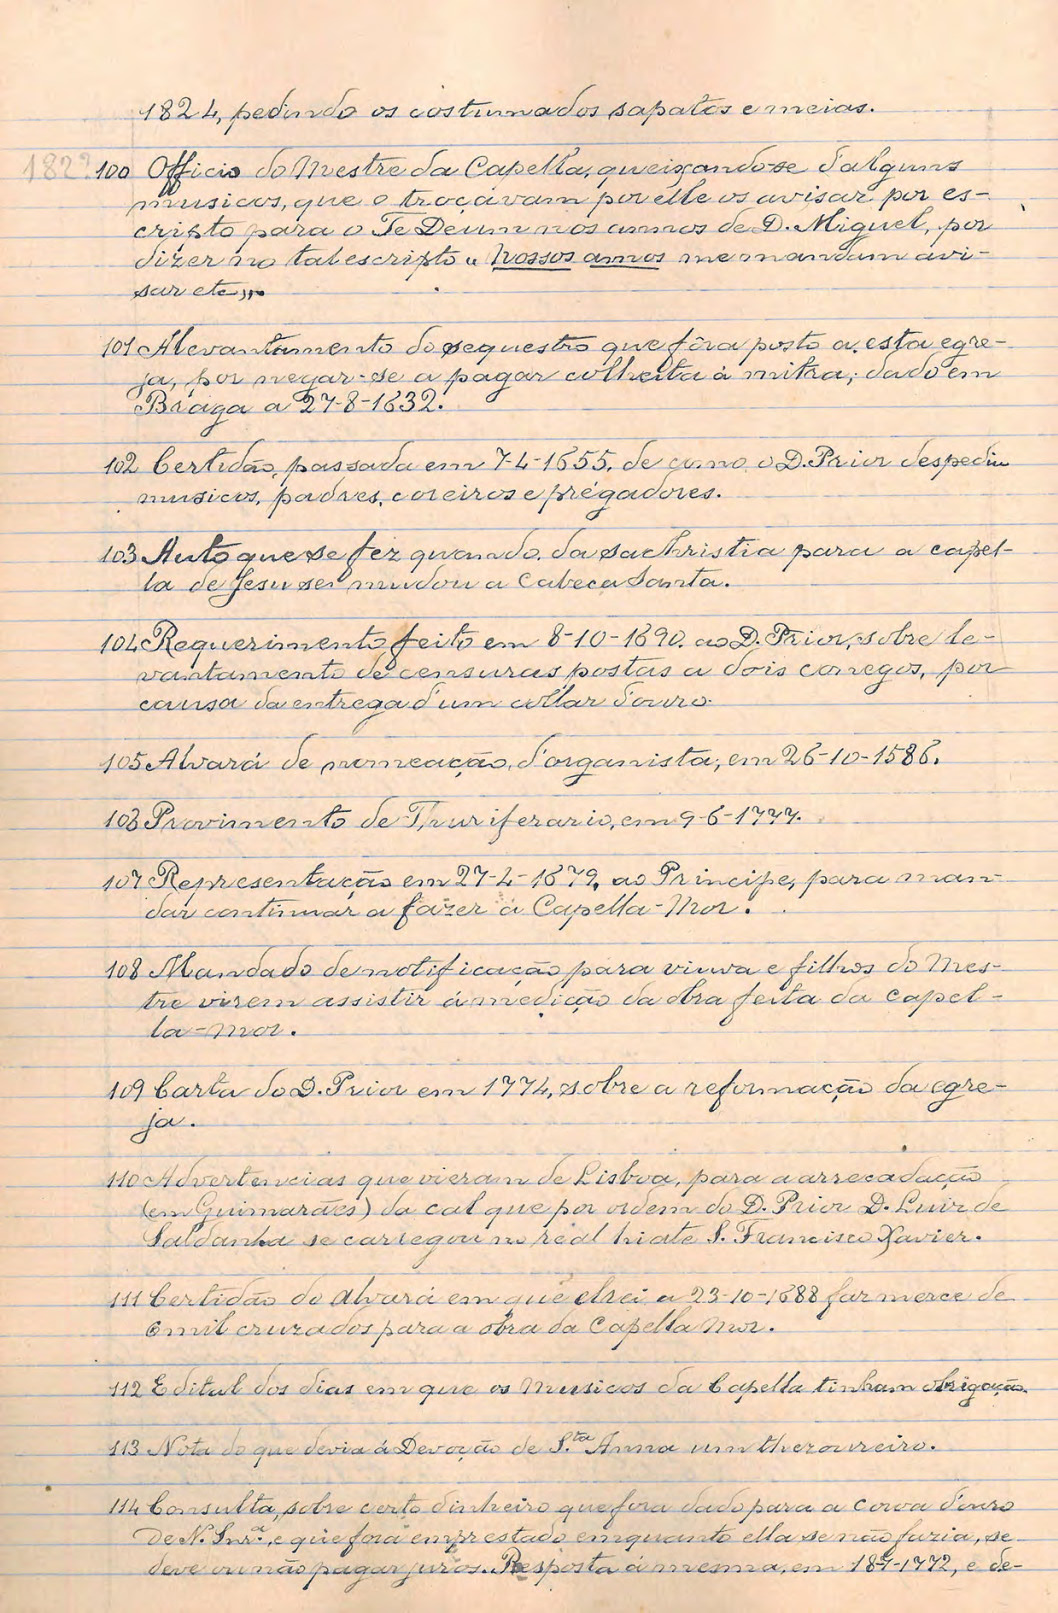 1824, pedindo os costumados sapatos e meias.
182?
100 Officio do Mestre da Capella, queixando-se d'alguns
musicos, que o troçavam por elle os avisar por es-
cripto para o Te Deum nos annos de D. Miguel, por
dizer no tal escripto "Nossos amos me mandam avi-
sar etc,,.
101 Alevantamento do sequestro que fôra posto a esta egre-
ja, por negar-se a pagar colheita á mitra; dado em
Braga a 27-8-1632.
102 Certidão, passada em 7-4-1655, de como o D. Prior despediu
musicos, padres, coreiros e prégadores.
103 Auto que se fez quando da sachristia para a capel-
la de Jesu se mudou a Cabeca Santa.
104 Requerimento feito em 8-10-1690, ao D. Prior, sobre le-
vantamento de censuras postas a dois conegos, por
causa da entrega d'um collar d'ouro.
105 Alvará de nomeação d'organista, em 26-10-1586.
106 Provimento de Thuriferario, em 9-6-1777.
107 Representação em 27-4-1679, ao Principe, para man-
dar continuar a fazer a Capella-Mor.
108 Mandado de notificação para viuva e filhos do Mes-
tre virem assistir á medição da obra feita da capel-
la-mor.
109 Carta do D. Prior em 1774, sobre a reformação da egre-
ja.
110 Advertencias que vieram de Lisboa, para a arrecadação
(em Guimarães) da cal que por ordem do D. Prior D. Luiz de
Saldanha se carregou no real hiate S. Francisco Xavier.
111 Certidão do Alvará em que elrei a 23-10-1688 faz merce de
6 mil cruzados para a obra da Capella Mor.
112 Edital dos dias em que os Musicos da Capella tinham obrigação.
113 Nota do que devia á Devoção de S.ta Anna um thezoureiro.
114 Consulta, sobre certo dinheiro que fora dado para a coroa d'ouro
De N. Snr.ª, e que fora emprestado emquanto ella se não fazia, se
deve ou não pagar juros. Resposta á mesma, em 18-7-1772, e de-